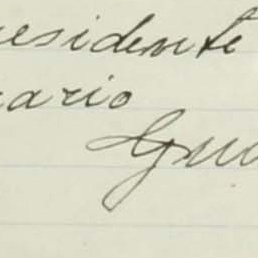 residente
rario